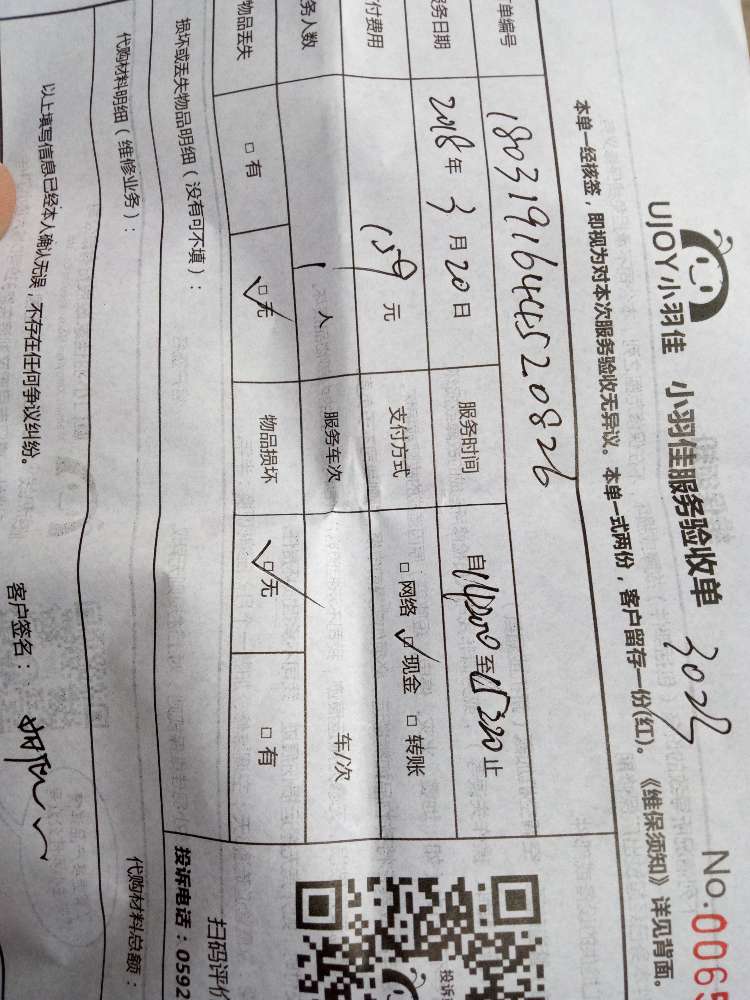 UJOY小羽佳 小羽佳服务验收单 No.0065
本单一经核签，即视为对本次服务验收无异议。本单一式两份，客户留存一份(红)。《维保须知》详见背面。
单编号 1803191644520826
务日期 2018年3月20日 服务时间 自 至 止
付费用 159元 支付方式 □网络 ☑现金 □转账
务人数 1人 服务车次 车/次
物品丢失 □有 ☑无 物品损坏 ☑无 □有
损坏或丢失物品明细（没有可不填）：
代购材料明细（维修业务）： 代购材料总额：
以上填写信息已经本人确认无误，不存在任何争议纠纷。 客户签名：
投诉
扫码评价
投诉电话：0592